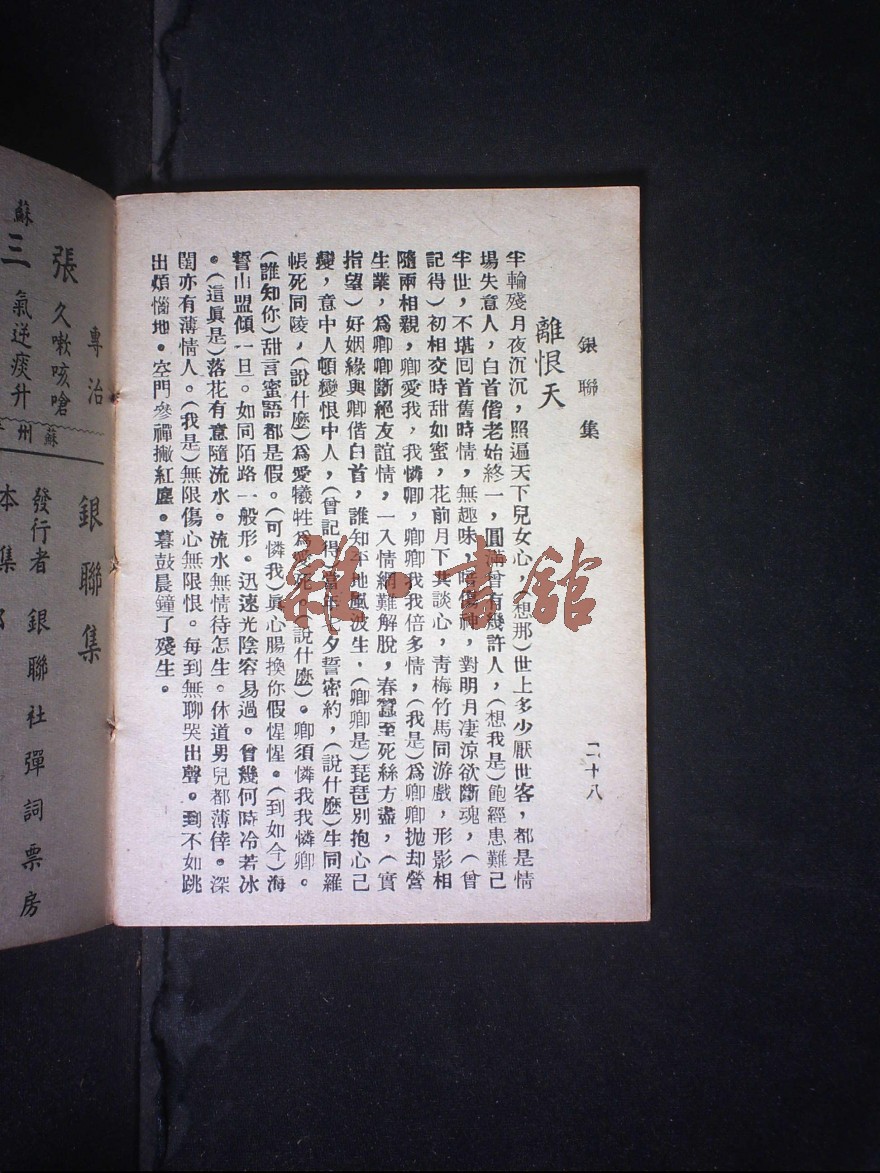 銀聯集
二十八
離恨天
半輪殘月夜沉沉，照遍天下兒女心，（想那）世上多少厭世客，都是情
場失意人，白首偕老始終一，圓滿曾有幾許人，（想我是）飽經患難己
半世，不堪囘首舊時情，無趣味，暗傷神，對明月凄涼欲斷魂，（曾
記得）初相交時甜如蜜，花前月下共談心，靑梅竹馬同游戲，形影相
隨兩相親，卿愛我，我憐卿，卿卿我我倍多情，（我是）爲卿卿拋却營
生業，爲卿卿斷絕友誼情，一入情網難解脫，春蠶至死絲方盡，（實
指望）好姻緣與卿偕白首，誰知平地風波生，（卿卿是）琵琶別抱心己
變，意中人頓變恨中人，（曾記得）當年夕誓密約，（說什麼）生同羅
帳死同陵，（說什麼）爲愛犧牲爲愛死。（說什麼）。卿須憐我我憐卿。
（誰知你）甜言蜜語都是假。（可憐我）眞心腸換你假惺惺。（到如今）海
誓山盟傾一旦。如同陌路一般形。迅速光陰容易過。曾幾何時冷若冰
。（這眞是）落花有意隨流水。流水無情待怎生。休道男兒都薄倖。深
閨亦有薄情人。（我是）無限傷心無限恨。每到無聊哭出聲。到不如跳
出煩惱地。空門參禪撇紅塵。暮鼓晨鐘了殘生。
雜·書館
專治
張 久嗽咳嗆
三 氣逆痰升
蘇
蘇州
銀聯集
發行者 銀聯社彈詞票房
本集